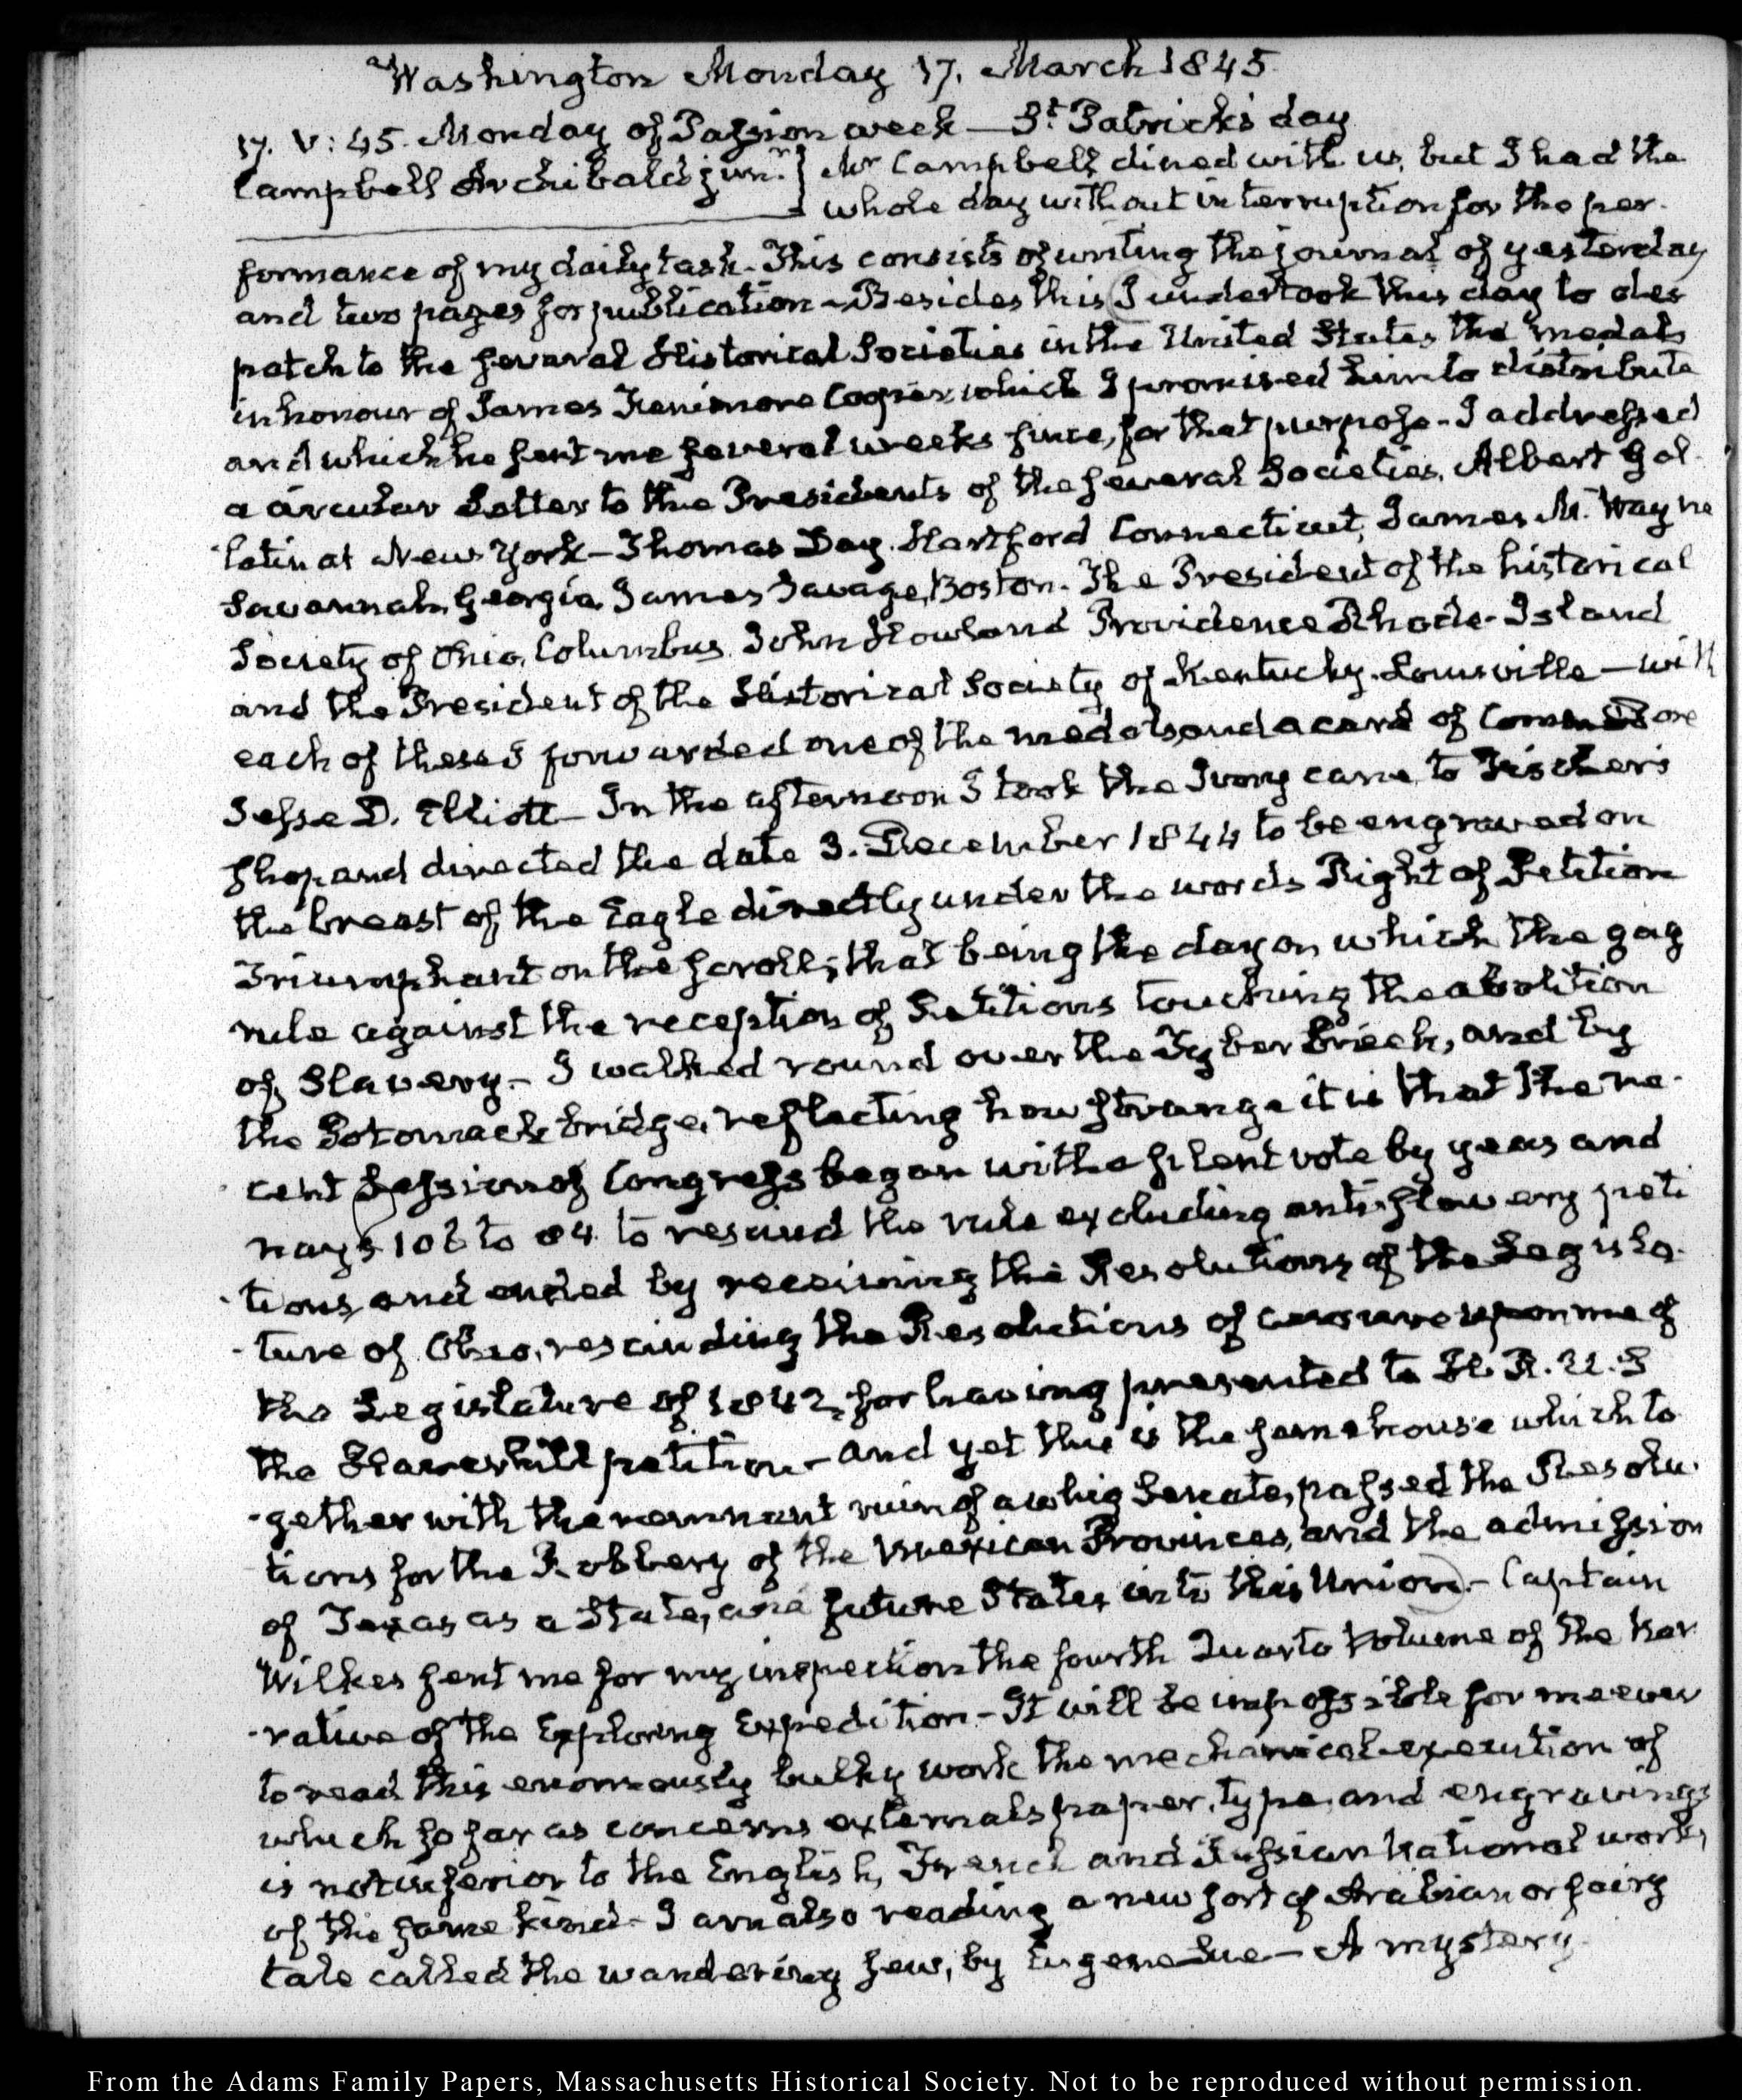 Washington Monday 17. March 1845.
17. V: 45. Monday of Passion week — St. Patrick's day
Campbell Archibald junr. } Mr Campbell dined with us, but I had the
whole day without interruption for the per-
formance of my daily task. This consists of writing the journal of yesterday
and two pages for publication — Besides this I undertook this day to des
patch to the several Historical Societies in the United States, the medals
in honour of James Fenimore Cooper, which I promised him to distribute
and which he sent me several weeks since, for that purpose — I addressed
a circular Letter to the Presidents of the several Societies, Albert Gal-
latin at New York — Thomas Day, Hartford Connecticut, James M. Wayne
Savannah, Georgia, James Savage, Boston. The President of the historical
Society of Ohio, Columbus. John Howland Providence Rhode-Island
and the President of the Historical Society of Kentucky. Louisville — with
each of these I forwarded one of the medals, and a card of Commodore
Jesse D. Elliott — In the afternoon I took the Ivory cane to Fischer's
shop, and directed the date 3. December 1844 to be engraved on
the breast of the Eagle directly under the words Right of Petition
Triumphant on the scroll; that being the day on which the gag
rule against the reception of Petitions touching the abolition
of Slavery. — I walked round over the Tyber Creek, and by
the Potomack bridge, reflecting how strange it is that the re-
cent Session of Congress began with a silent vote by yeas and
nays 108 to 84 to rescind the rule excluding anti-slavery peti
tions, and ended by receiving the Resolutions of the Legisla-
ture of Ohio, rescinding the Resolutions of censure upon me of
the Legislature of 1842, for having presented to H. R. U. S
the Haverhill petition — and yet this is the same house which to
-gether with the remnant ruin of a whig Senate, passed the Resolu-
tions for the Robbery of the Mexican Provinces, and the admission
of Texas as a State, and future States into this Union. — Captain
Wilkes sent me for my inspection the fourth Quarto Volume of the Nar
-rative of the Exploring Expedition — It will be impossible for me ever
to read this enormously bulky work the mechanical execution of
which so far as concerns externals paper, type, and engravings
is not inferior to the English, French and Russian National works,
of the same kind — I am also reading a new sort of Arabian or fairy
tale called the wandering Jew, by Eugene Sue — A mystery.
From the Adams Family Papers, Massachusetts Historical Society. Not to be reproduced without permission.